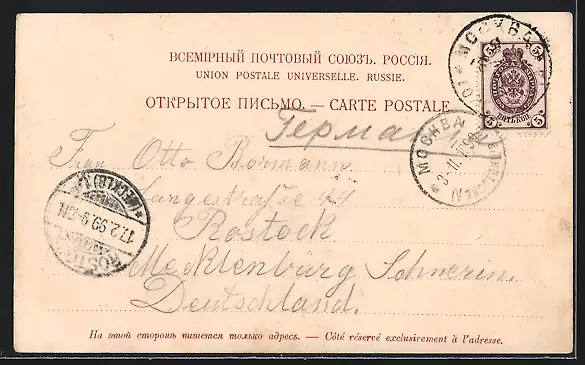 ВСЕМІРНЫЙ ПОЧТОВЫЙ СОЮЗЪ. РОССІЯ.
UNION POSTALE UNIVERSELLE. RUSSIE.
ОТКРЫТОЕ ПИСЬМО. — CARTE POSTALE.
Германія
Frau Otto Bormann
Langestraße 44
Rostock
Mecklenburg Schwerin.
Deutschland.
На этой сторонѣ пишется только адресъ. — Côté réservé exclusivement à l'adresse.
МОСКВА
5 5
ПЯТЬ КОП.
5 5
МОСКВА
ROSTOCK
17.2.99.
(MECKLB)